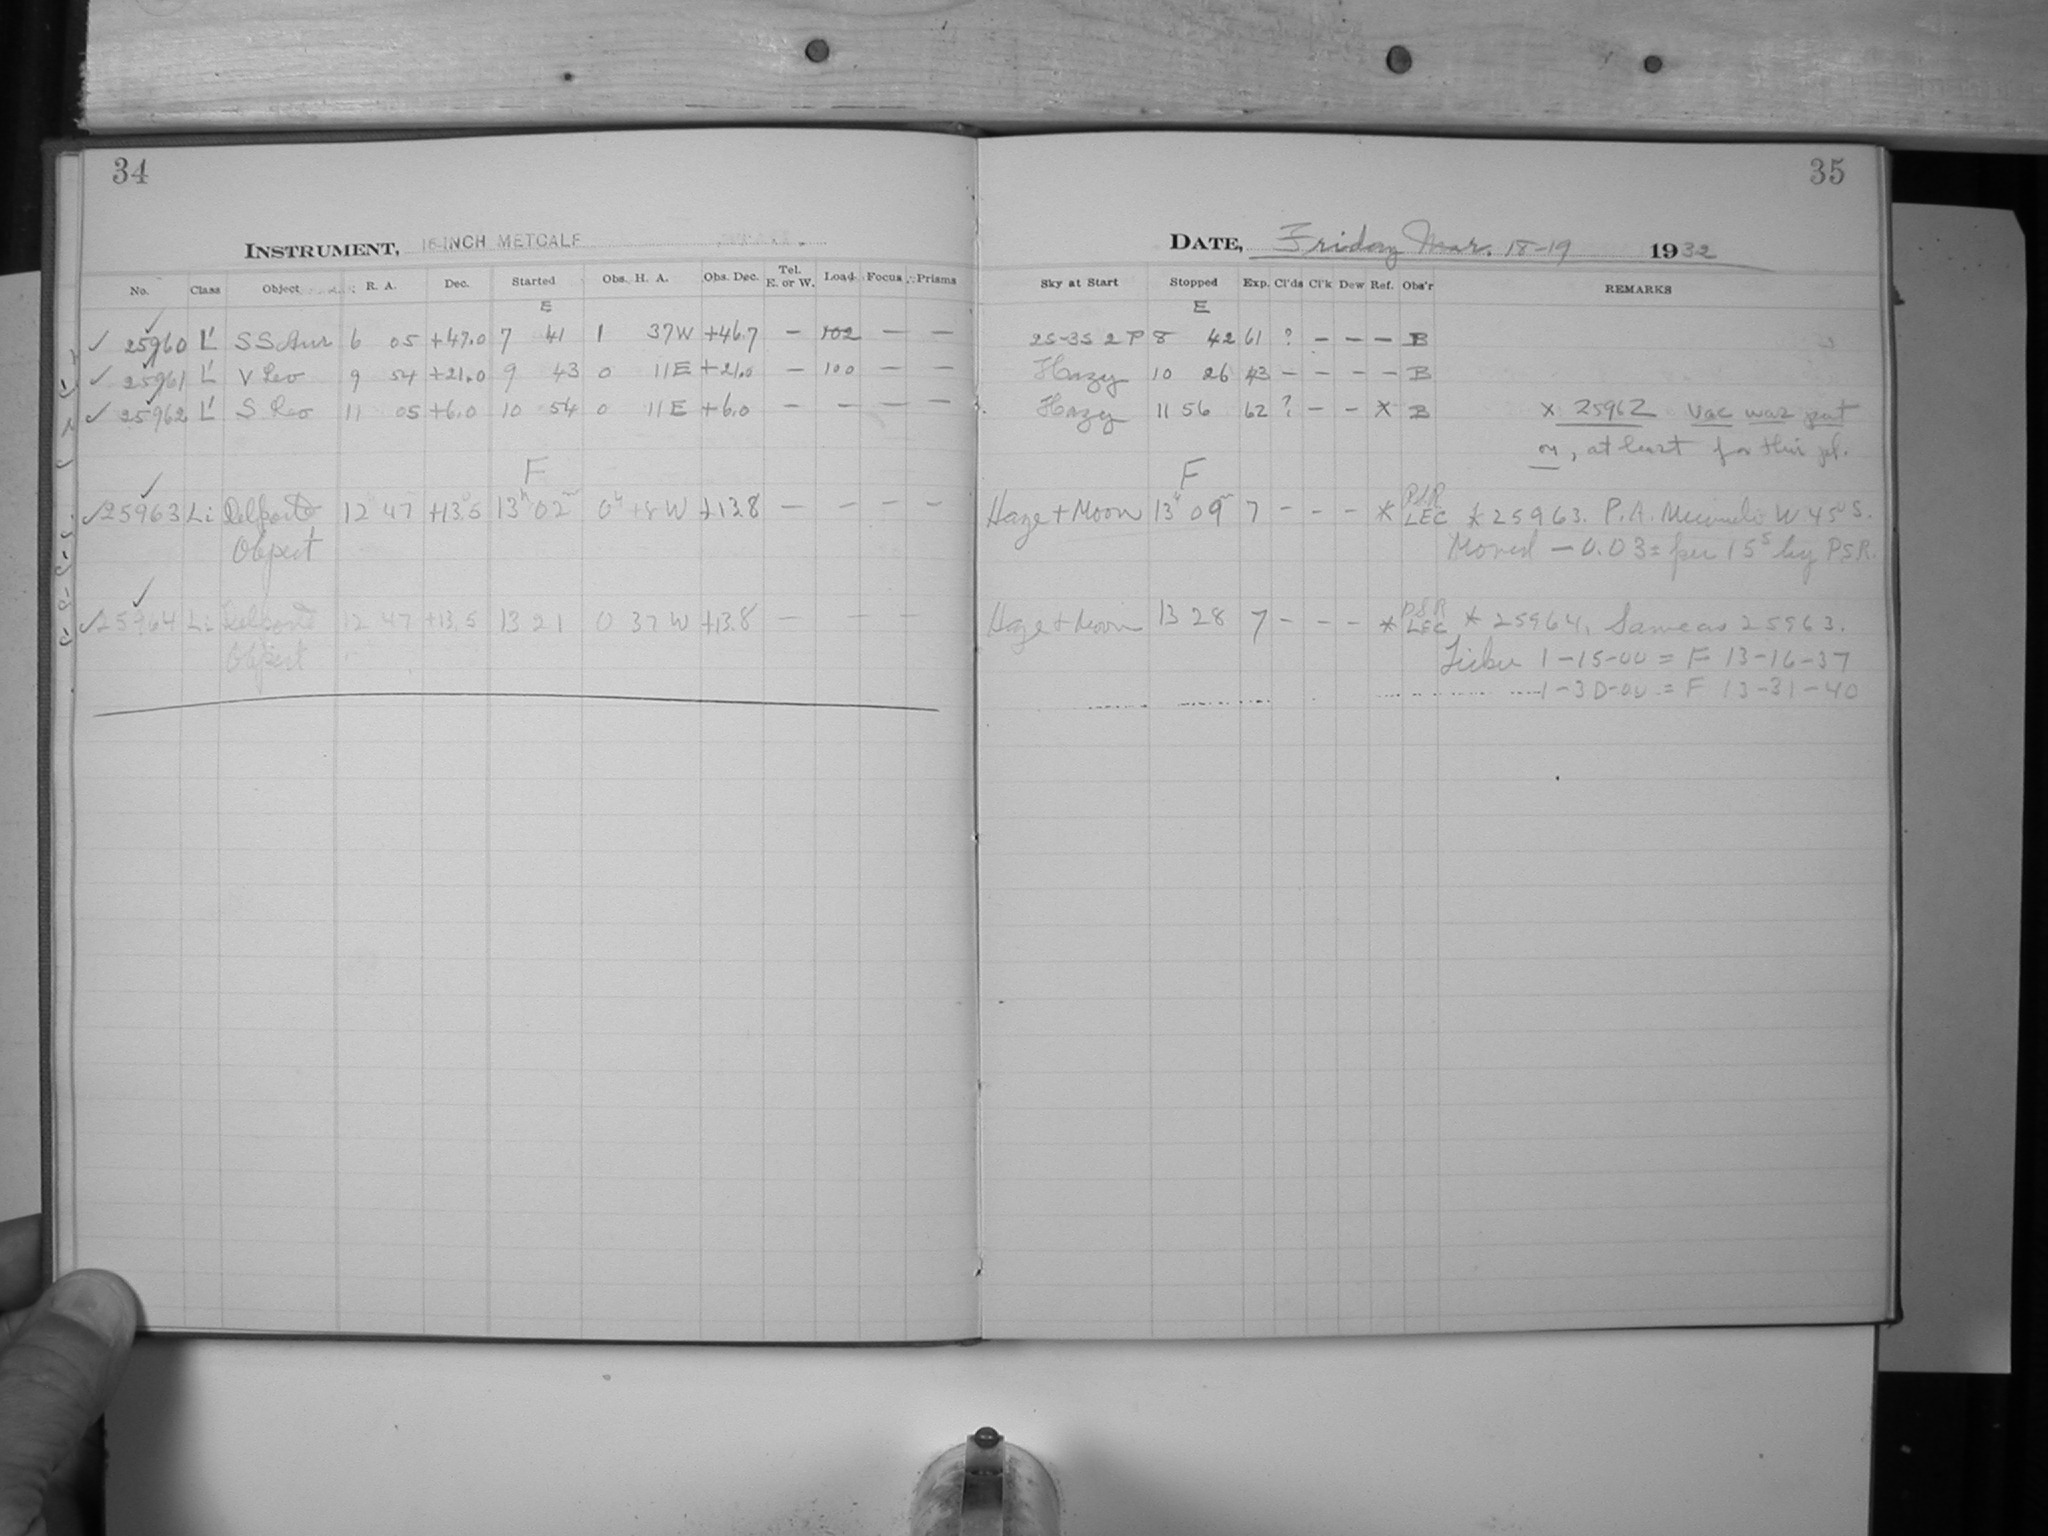 34
INSTRUMENT, 16-INCH METCALF
No. Class Object R. A. Dec. Started Obs. H. A. Obs. Dec. Tel. E. or W. Load Focus Prisms
E
✓ 25960 L' SS Aur 6 05 +47.0 7 41 1 37W +46.7 — 102 — —
✓ 25961 L' V Leo 9 54 +21.0 9 43 0 11E +21.0 — 100 — —
✓ 25962 L' S Leo 11 05 +6.0 10 54 0 11E +6.0 — — — —
F
✓ 25963 Li Delporte 12 47 +13.5 13h 02m 0h +8 W +13.8 — — — —
Object
✓ 25964 Li Delporte 12 47 +13.5 13 21 0 37 W +13.8 — — —
Object
35
DATE, Friday Mar. 18-19 1932
Sky at Start Stopped Exp. Cl'ds Cl'k Dew Ref. Obs'r REMARKS
E
25-35 2 P 8 42 61 ? — — — B
Hazy 10 26 43 — — — — B
Hazy 11 56 62 ? — — X B X 25962 Vac was put
on, at least for this pl.
F
Haze + Moon 13h 09m 7 — — — * PSR LEC * 25963. P.A. W 45° S.
Moved — 0.03 per 15s by PSR.
Haze + Moon 13 28 7 — — — * PSR LEC * 25964. Same as 25963.
Ticker 1-15-00 = F 13-16-37
1-30-00 = F 13-31-40